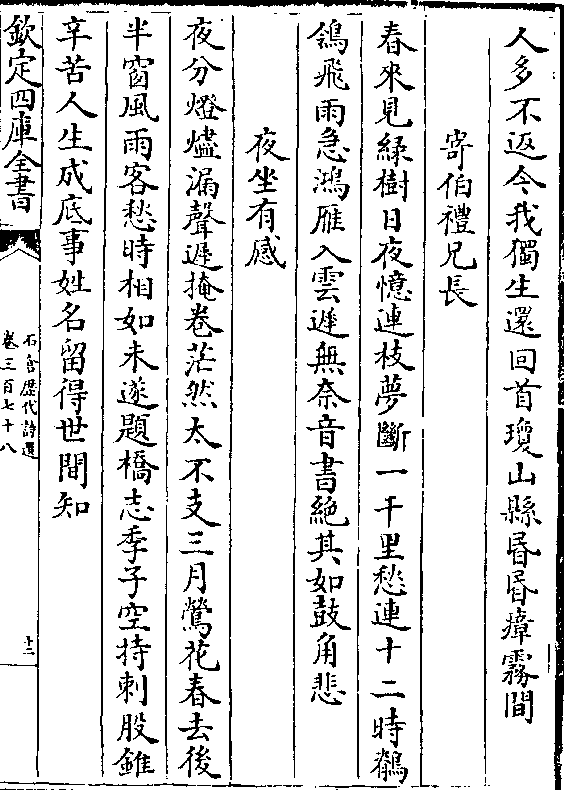 人多不返今我獨生還回首瓊山縣昬昬瘴霧間
寄伯禮兄長
春來見緑樹日夜憶連枝夢斷一千里愁連十二時鶺
鴒飛雨急鴻雁入雲遲無奈音書絶其如鼓角悲
夜坐有感
夜分燈燼漏聲遲掩卷茫然太不支三月鶯花春去後
半窗風雨客愁時相如未遂題橋志季子空持刺股錐
辛苦人生成底事姓名留得世間知
欽定四庫全書
石倉歴代詩選
卷三百七十八
十二